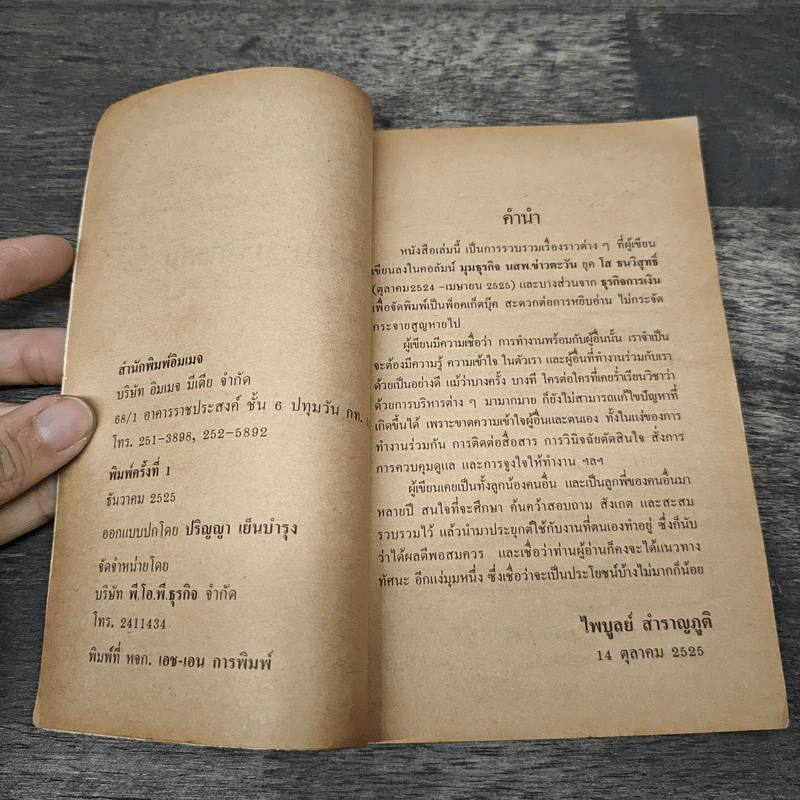 สำนักพิมพ์อิมเมจ
บริษัท อิมเมจ มีเดีย จำกัด
68/1 อาคารราชประสงค์ ชั้น 6 ปทุมวัน กท.
โทร. 251-3898, 252-5892
พิมพ์ครั้งที่ 1
ธันวาคม 2525
ออกแบบปกโดย ปริญญา เย็นบำรุง
จัดจำหน่ายโดย
บริษัท พี.โอ.พี.ธุรกิจ จำกัด
โทร. 2411434
พิมพ์ที่ หจก. เอช-เอน การพิมพ์
คำนำ
หนังสือเล่มนี้ เป็นการรวบรวมเรื่องราวต่าง ๆ ที่ผู้เขียน
เขียนลงในคอลัมน์ มุมธุรกิจ นสพ.ข่าวตะวัน ยุค โส ธนวิสุทธิ์
(ตุลาคม2524 -เมษายน 2525) และบางส่วนจาก ธุรกิจการเงิน
เพื่อจัดพิมพ์เป็นพ็อคเก็ตบุ๊ค สะดวกต่อการหยิบอ่าน ไม่กระจัด
กระจายสูญหายไป
ผู้เขียนมีความเชื่อว่า การทำงานพร้อมกับผู้อื่นนั้น เราจำเป็น
จะต้องมีความรู้ ความเข้าใจ ในตัวเรา และผู้อื่นที่ทำงานร่วมกับเรา
ด้วยเป็นอย่างดี แม้ว่าบางครั้ง บางที ใครต่อใครที่เคยร่ำเรียนวิชาว่า
ด้วยการบริหารต่าง ๆ มามากมาย ก็ยังไม่สามารถแก้ไขปัญหาที่
เกิดขึ้นได้ เพราะขาดความเข้าใจผู้อื่นและตนเอง ทั้งในแง่ของการ
ทำงานร่วมกัน การติดต่อสื่อสาร การวินิจฉัยตัดสินใจ สั่งการ
การควบคุมดูแล และการจูงใจให้ทำงาน ฯลฯ
ผู้เขียนเคยเป็นทั้งลูกน้องคนอื่น และเป็นลูกพี่ของคนอื่นมา
หลายปี สนใจที่จะศึกษา ค้นคว้าสอบถาม สังเกต และสะสม
รวบรวมไว้ แล้วนำมาประยุกต์ใช้กับงานที่ตนเองทำอยู่ ซึ่งก็นับ
ว่าได้ผลดีพอสมควร และเชื่อว่าท่านผู้อ่านก็คงจะได้แนวทาง
ทัศนะ อีกแง่มุมหนึ่ง ซึ่งเชื่อว่าจะเป็นประโยชน์บ้างไม่มากก็น้อย
ไพบูลย์ สำราญภูติ
14 ตุลาคม 2525